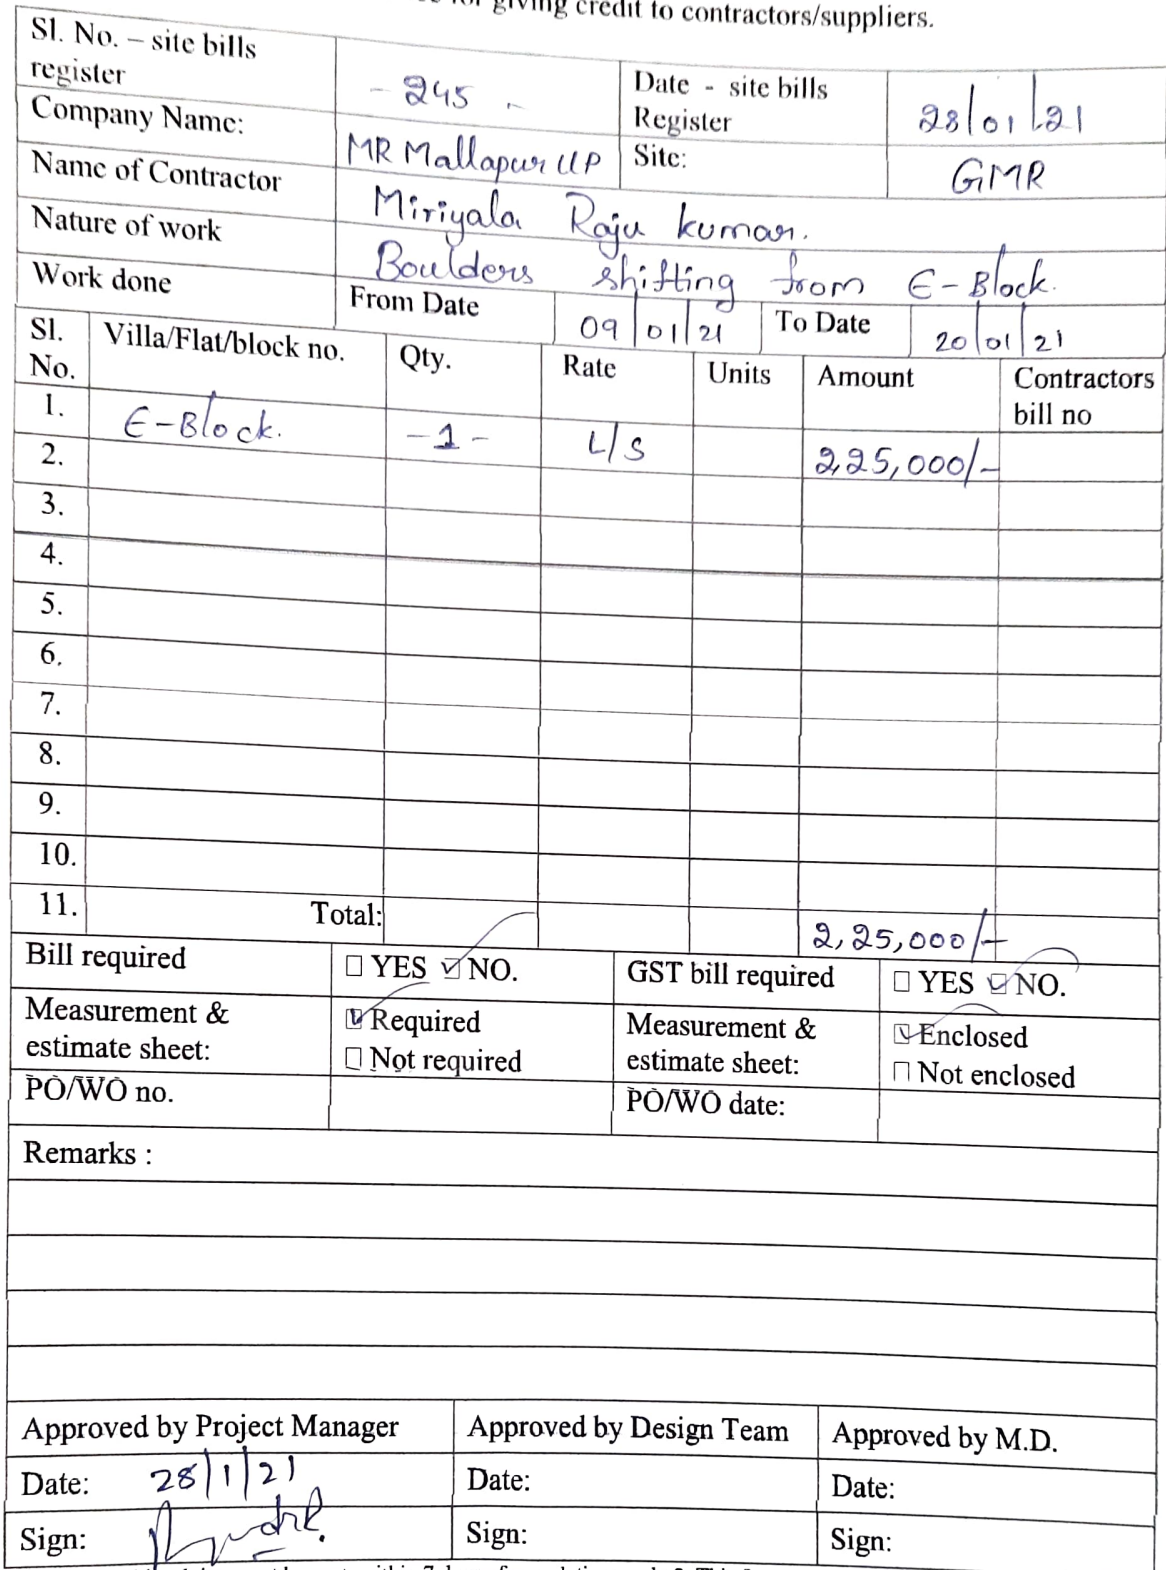 for giving credit to contractors/suppliers.
Sl. No. – site bills register - 245 - Date - site bills Register 28/01/21
Company Name: MR Mallapur LLP Site: GMR
Name of Contractor Miriyala Raju kumar.
Nature of work Boulders shifting from E-Block.
Work done From Date 09/01/21 To Date 20/01/21
Sl. No. Villa/Flat/block no. Qty. Rate Units Amount Contractors bill no
1. E-Block. -1- L/S 2,25,000/-
2.
3.
4.
5.
6.
7.
8.
9.
10.
11. Total: 2,25,000/-
Bill required YES NO. GST bill required YES NO.
Measurement & estimate sheet: Required Not required Measurement & estimate sheet: Enclosed Not enclosed
PO/WO no. PO/WO date:
Remarks :
Approved by Project Manager Approved by Design Team Approved by M.D.
Date: 28/1/21 Date: Date:
Sign: Sign: Sign: